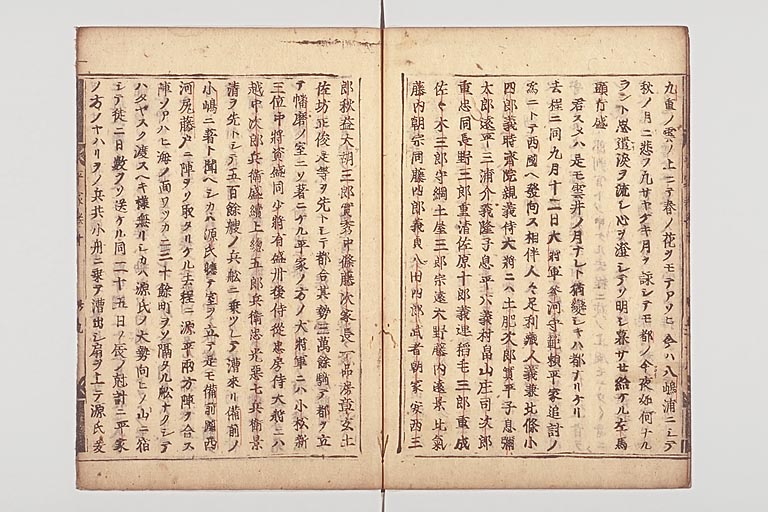 九重ノ雲ノ上ニテ春ノ花ヲモテアソヒ今ハ八嶋浦ニシテ
秋ノ月ニ悲フ凡サヤケキ月ヲ詠シテモ都ノ今夜如何ナル
ラント思遣淚ヲ流シ心ヲ澄シテソ明シ暮サセ給ケル左馬
頭行盛
君スメハ是モ雲井ノ月ナレト猶戀シキハ都ナリケリ
去程ニ同九月十二日大將軍參河守範頼平家追討ノ
為ニトテ西國ヘ發向ス相伴人々足利藏人義兼北條小
四郎義時齋院親義侍大將ニハ土肥次郎實平子息彌
太郎遠平三浦介義隆子息平六義村畠山庄司次郎
重忠同長野三郎重清佐原十郎義連稻毛三郎重成
佐々木三郎守綱土屋三郎宗遠天野藤内遠景比氣
藤内朝宗同藤四郎義員八田四郎武者朝家安西三
郎秋益大胡三郎實秀中條藤次家長一品房章玄土
佐坊正俊是等ヲ先トシテ都合其勢三萬餘騎テ都ヲ立
テ幡磨ノ室ニソ著ニケル平家ノ方ノ大將軍ニハ小松新
三位中將資盛同少將有盛丹後侍從忠房侍大將ニハ
越中次郎兵衛盛續上總五郎兵衛忠光悪七兵衛景
清ヲ先トシテ五百餘艘ノ兵舩ニ乗ツレテ漕來リ備前ノ
小嶋ニ著ト聞ヘシカハ源氏聽テ室ヲ立テ是モ備前國西
河尻藤戸ニ陣ヲソ取タリケル去程ニ源平兩方陣ヲ合ス
陣ノアハヒ海ノ面ワツカニ三十餘町ヲソ隔タル舩ナクシテ
ハタヤスク渡スヘキ様無リシカハ源氏ノ大勢向ヒノ山ニ宿
シテ徒ニ日數ヲソ送ケル同二十五日ノ辰ノ刻計ニ平家
ノ方ノハヤリヲノ兵共小舟ニ乗テ漕出シ扇ヲ上テ源氏爰